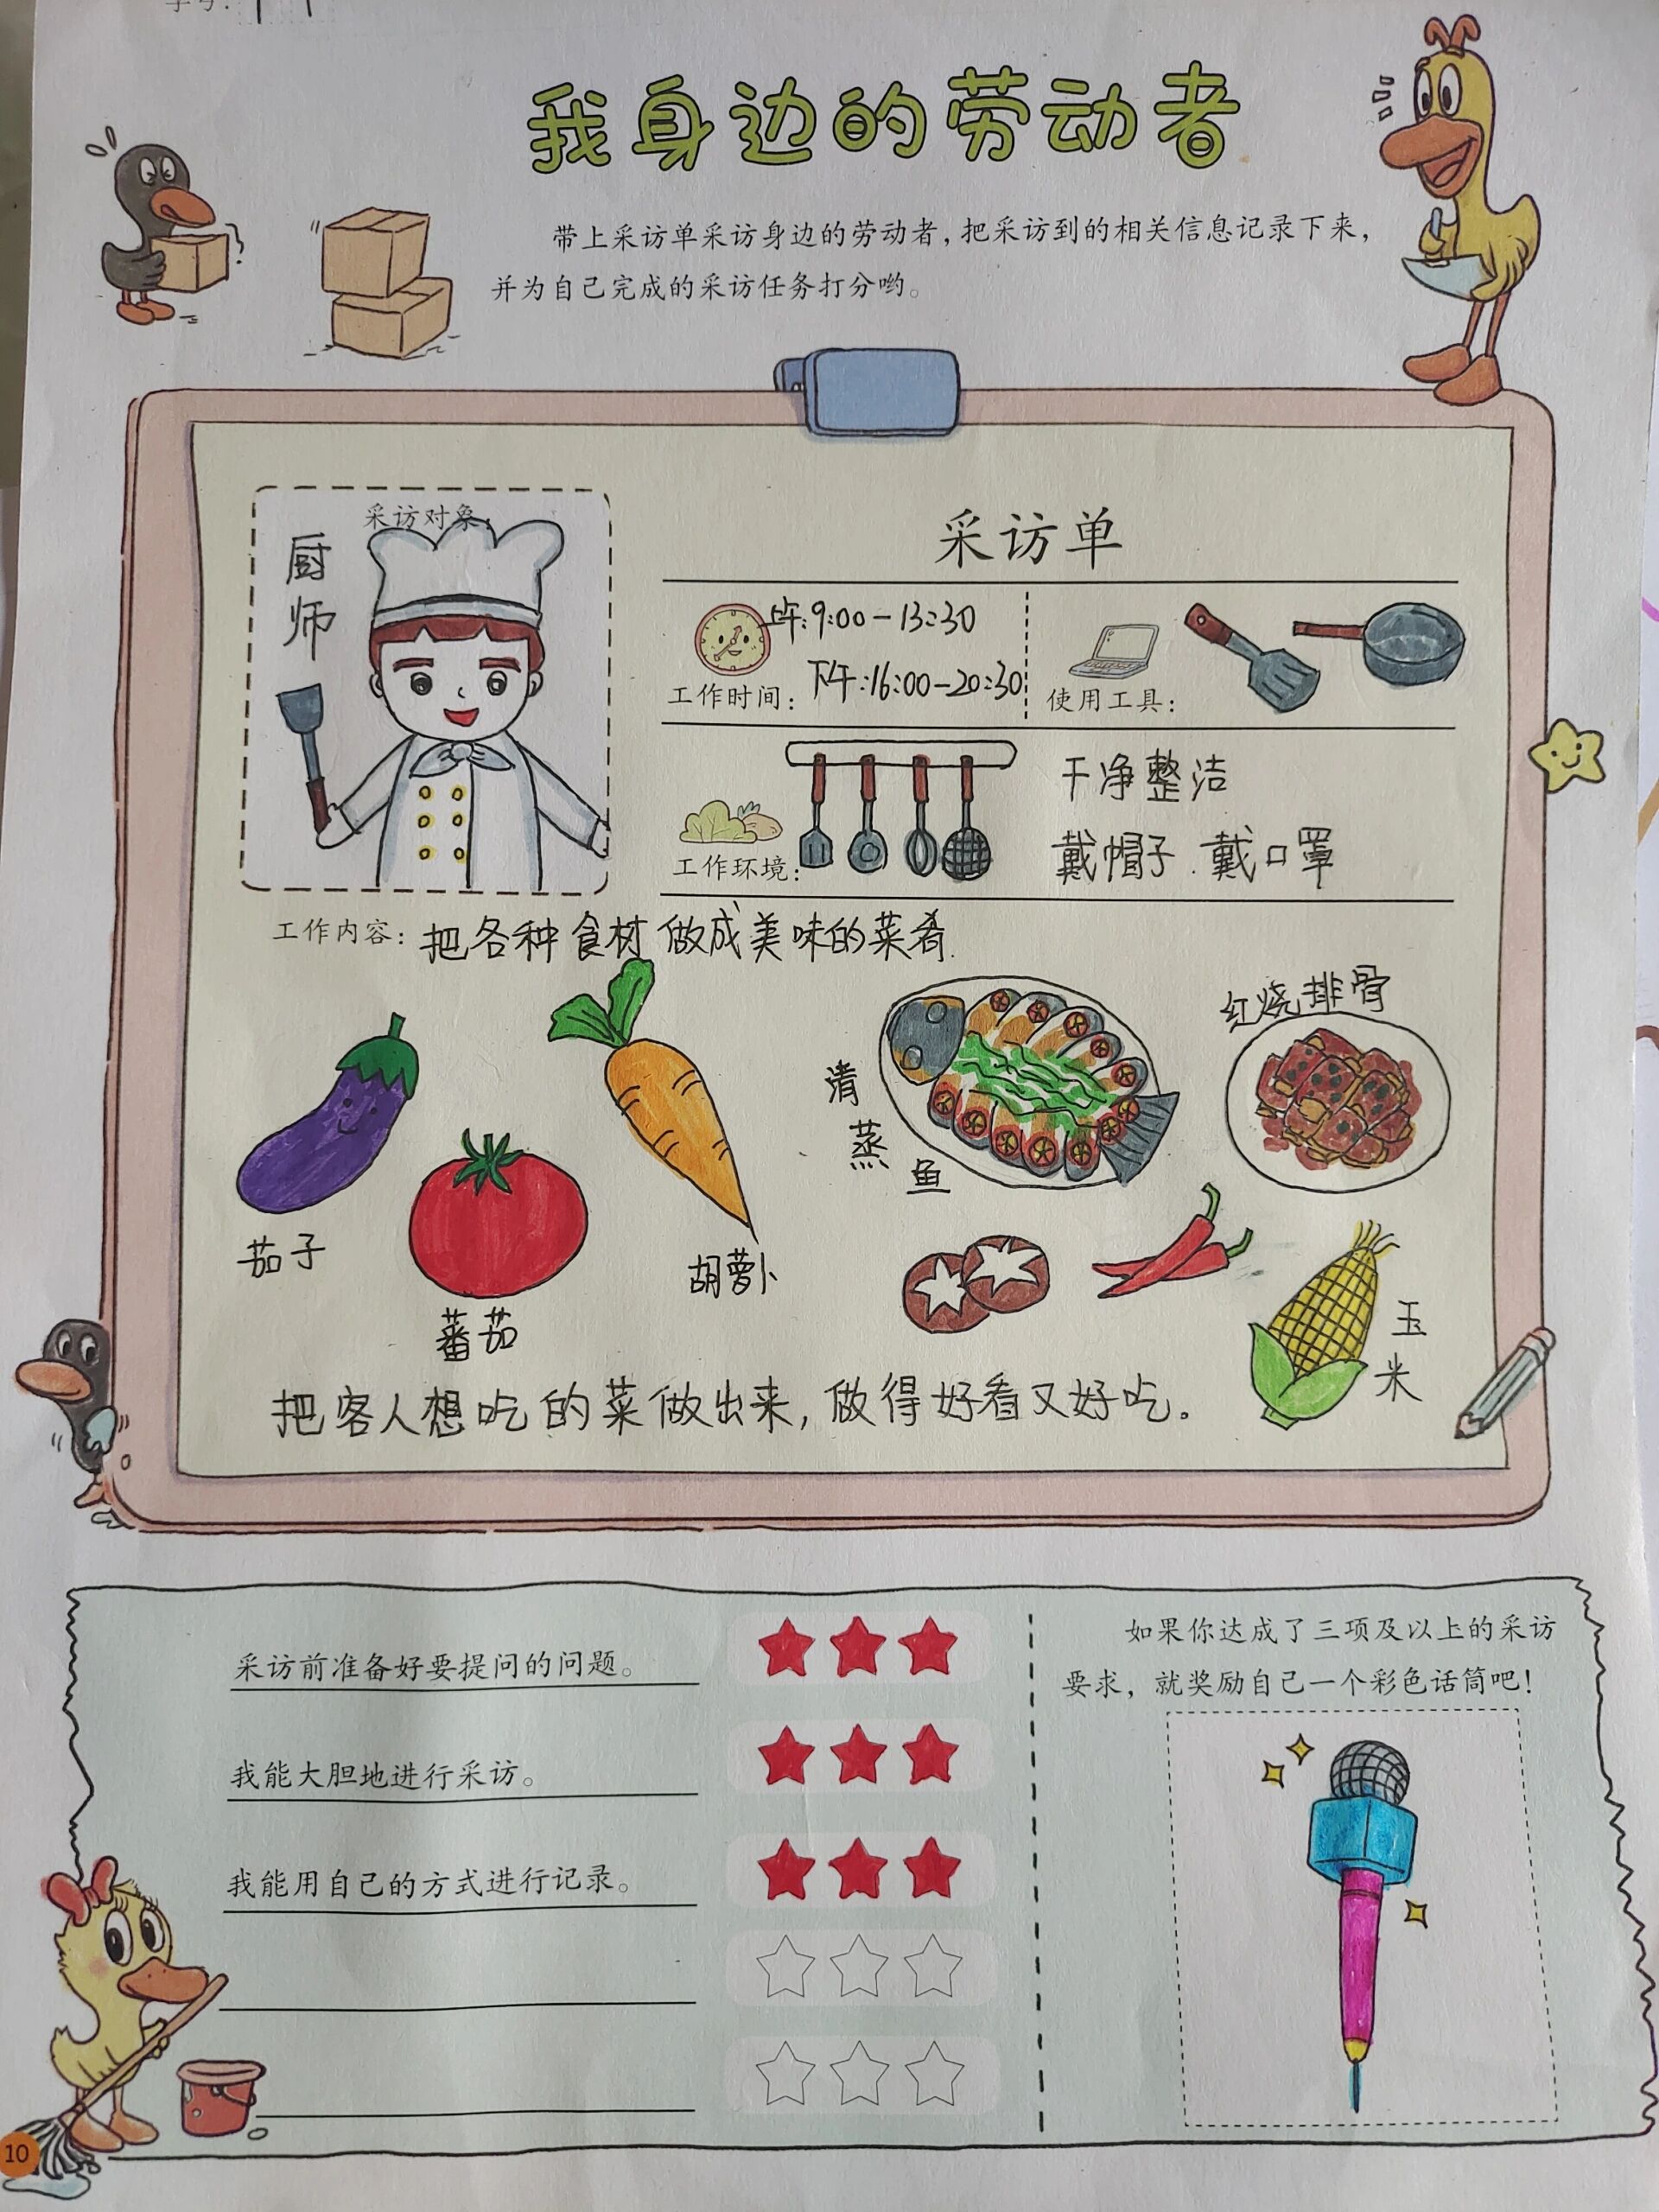 学号：
我身边的劳动者
带上采访单采访身边的劳动者，把采访到的相关信息记录下来，
并为自己完成的采访任务打分哟。
采访对象：
厨师
采访单
上午：9:00-13:30
下午：16:00-20:30
工作时间：
使用工具：
干净整洁
戴帽子．戴口罩
工作环境：
工作内容：把各种食材做成美味的菜肴．
茄子
番茄
胡萝卜
清蒸鱼
红烧排骨
玉米
把客人想吃的菜做出来，做得好看又好吃。
采访前准备好要提问的问题。
我能大胆地进行采访。
我能用自己的方式进行记录。
如果你达成了三项及以上的采访
要求，就奖励自己一个彩色话筒吧！
10